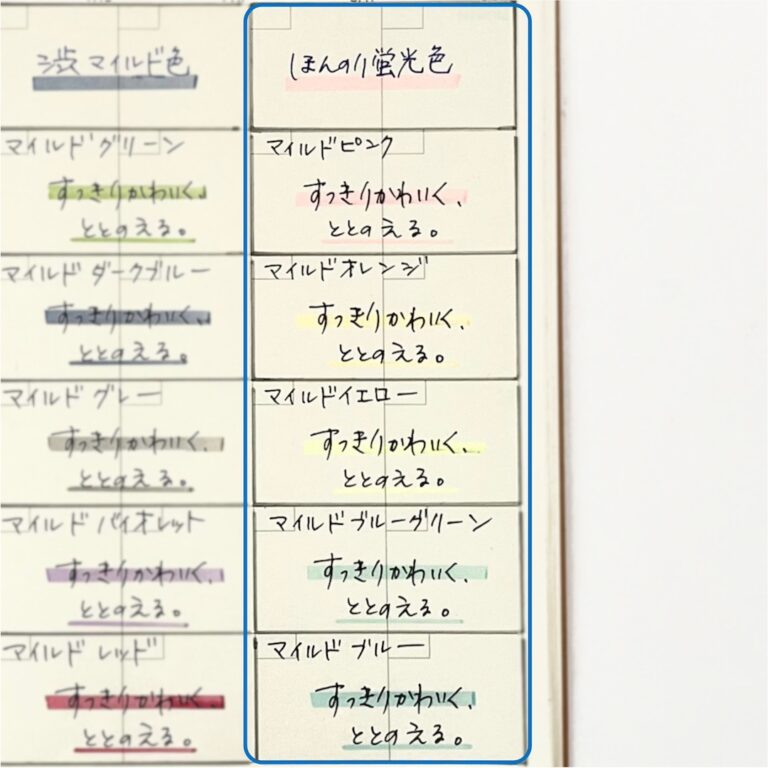 渋マイルド色
マイルドグリーン
すっきりかわいく、
ととのえる。
マイルドダークブルー
すっきりかわいく、
ととのえる。
マイルドグレー
すっきりかわいく、
ととのえる。
マイルドバイオレット
すっきりかわいく、
ととのえる。
マイルドレッド
すっきりかわいく、
ととのえる。
ほんのり蛍光色
マイルドピンク
すっきりかわいく、
ととのえる。
マイルドオレンジ
すっきりかわいく、
ととのえる。
マイルドイエロー
すっきりかわいく、
ととのえる。
マイルドブルーグリーン
すっきりかわいく、
ととのえる。
マイルドブルー
すっきりかわいく、
ととのえる。